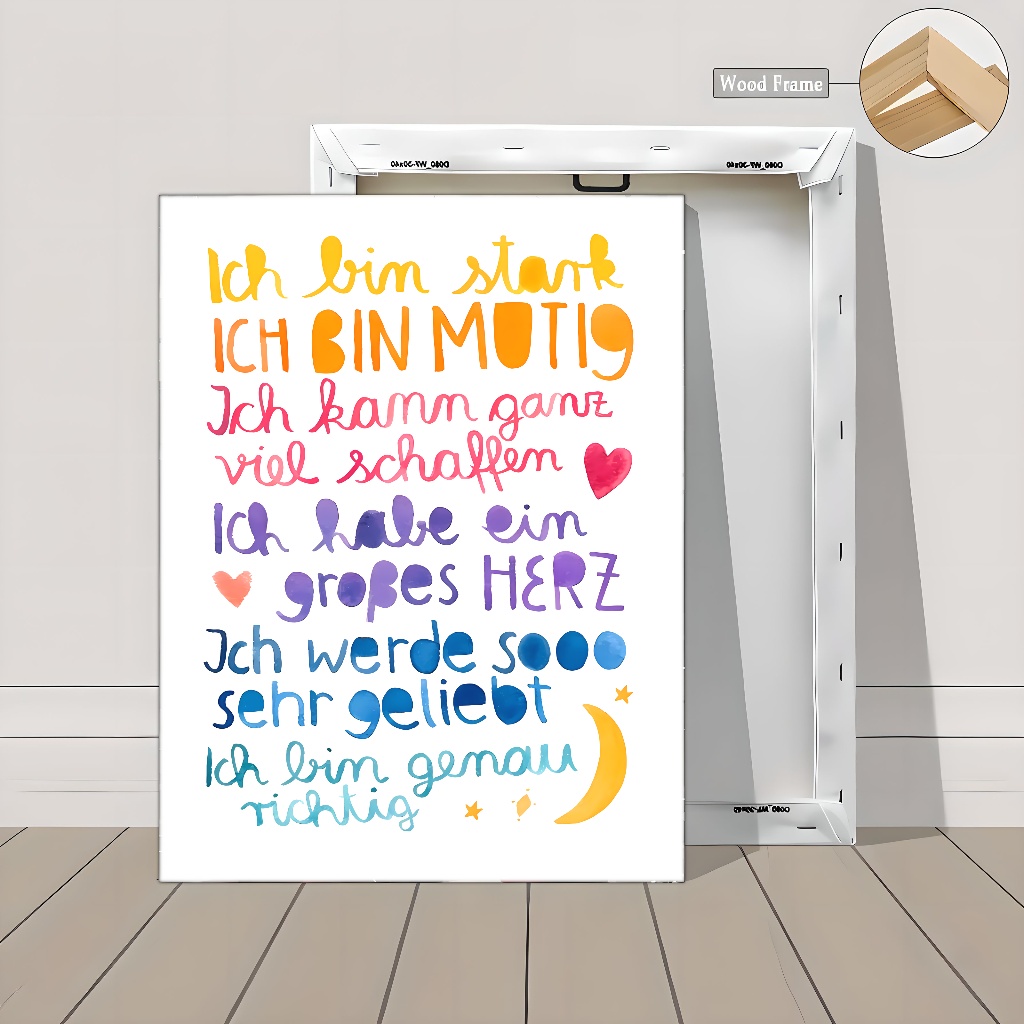 Wood Frame
Ich bin stark
ICH BIN MUTIG
Ich kann ganz
viel schaffen
Ich habe ein
großes HERZ
Ich werde sooo
sehr geliebt
Ich bin genau
richtig